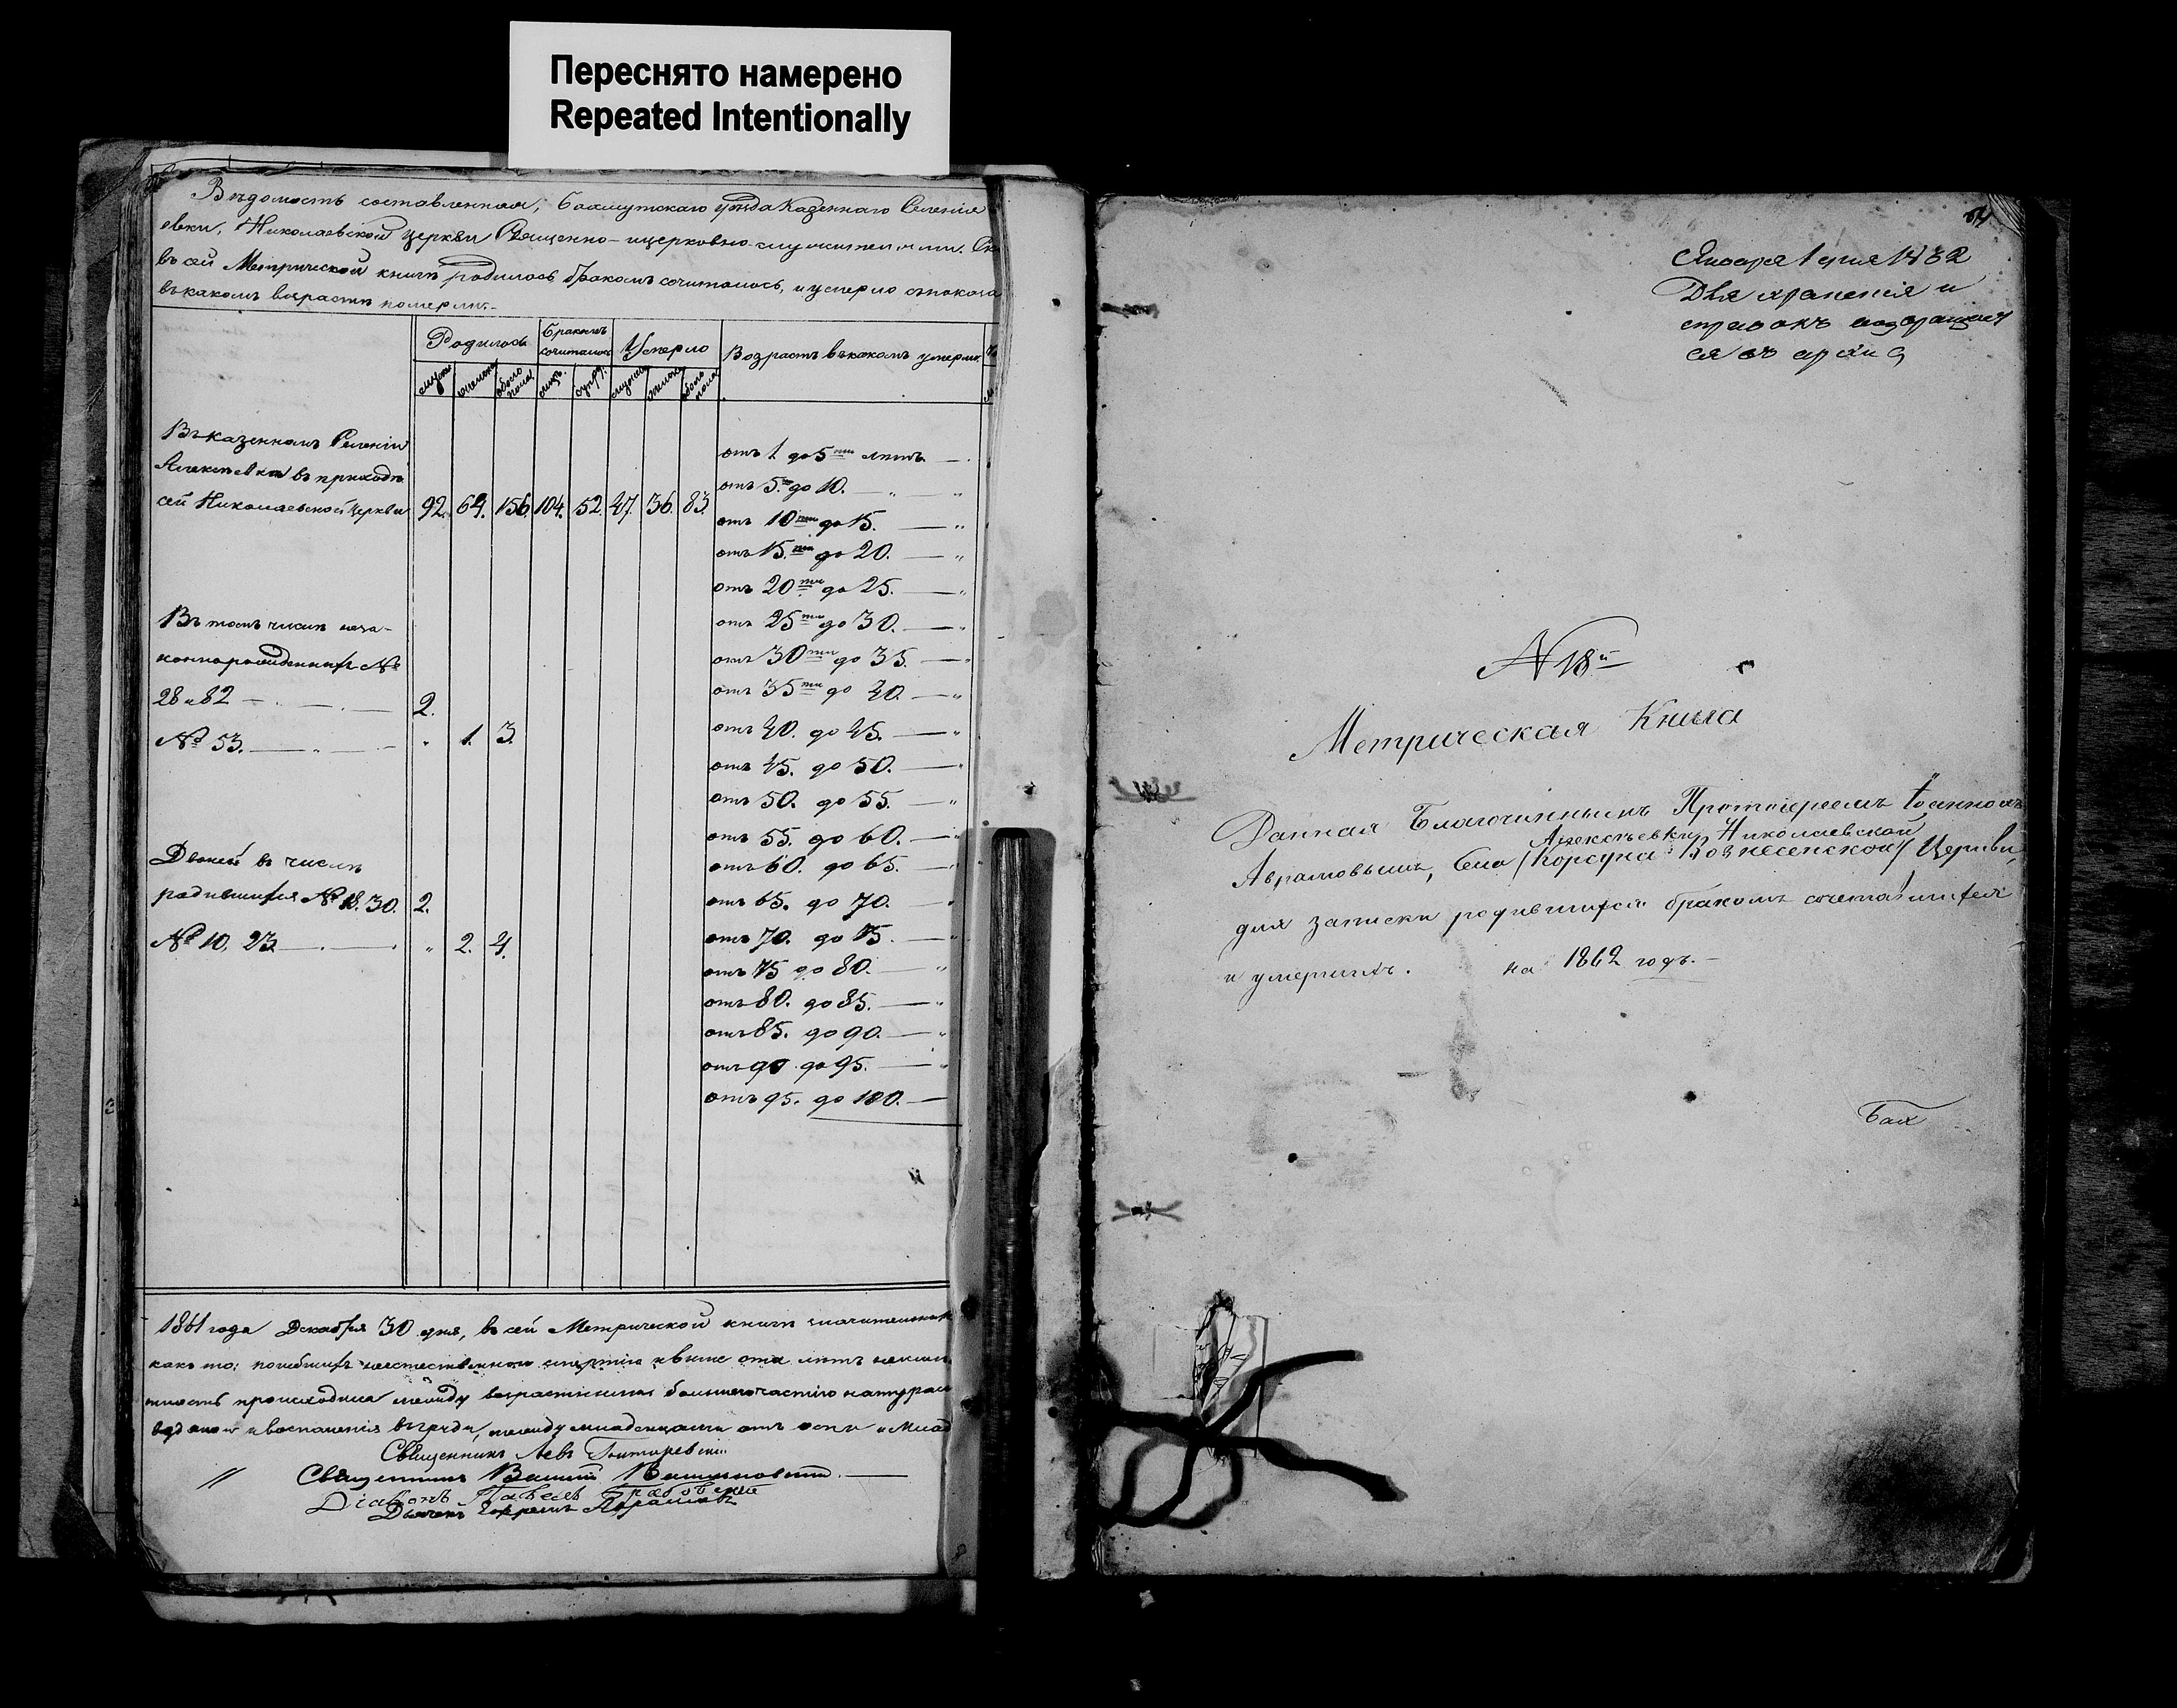 Переснято намерено
Repeated Intentionally
Вѣдомость составленная, Бахмутскаго уѣзда Казеннаго Селенія
евки, Николаевской церкви Священно-ицерковно-служителями.
въ сей Метрической книгѣ родилось бракомъ сочиталось, и умерло
въ какомъ возрастѣ померли.
Родилось
Бракомъ сочиталось
Умерло
Возрастъ въ какомъ умерли.
Въ казенномъ Селеніи
Алексѣевкѣ въ приходѣ
сей Николаевской церкви 92. 64. 156. 104. 52. 47. 36. 83.
Въ томъ числѣ неза-
коннорожденныхъ №
28 и 82 2.
№ 53. 1. 3.
Двоней въ числѣ
родившихся № 18. 30. 2.
№ 10, 23 2. 4.
отъ 1 до 5ти лѣтъ
отъ 5.ти до 10.
отъ 10ти до 15.
отъ 15.ти до 20.
отъ 20ти до 25.
отъ 25ти до 30.
отъ 30ти до 35.
отъ 35ти до 40.
отъ 40. до 45.
отъ 45. до 50.
отъ 50. до 55.
отъ 55. до 60.
отъ 60. до 65.
отъ 65. до 70.
отъ 70. до 75.
отъ 75 до 80.
отъ 80. до 85.
отъ 85. до 90.
отъ 90 до 95.
отъ 95. до 100.
1861 года Декабря 30 дня, въ сей Метрической книгѣ
какъ то; погибшихъ неестественною смертію свыше ста лѣтъ
происходила между возрастными большею частію
и воспаленія въ груди, между младенцами отъ оспы
Священникъ Левъ
Священникъ
Діаконъ Павелъ
Дьячекъ Ефремъ Абрамовъ
Января 1 дня 1862
Для храненія и
справокъ возвращает
ся въ архив
№ 18й
Метрическая Книга
Данная Благочиннымъ Протоіереемъ Іоанномъ
Алексѣевки Николаевской
Аврамовымъ, Села (Корсуна Вознесенской) Церкви,
для записки родившихся бракомъ сочетавшихся
и умершихъ. на 1862 годъ.
Бах